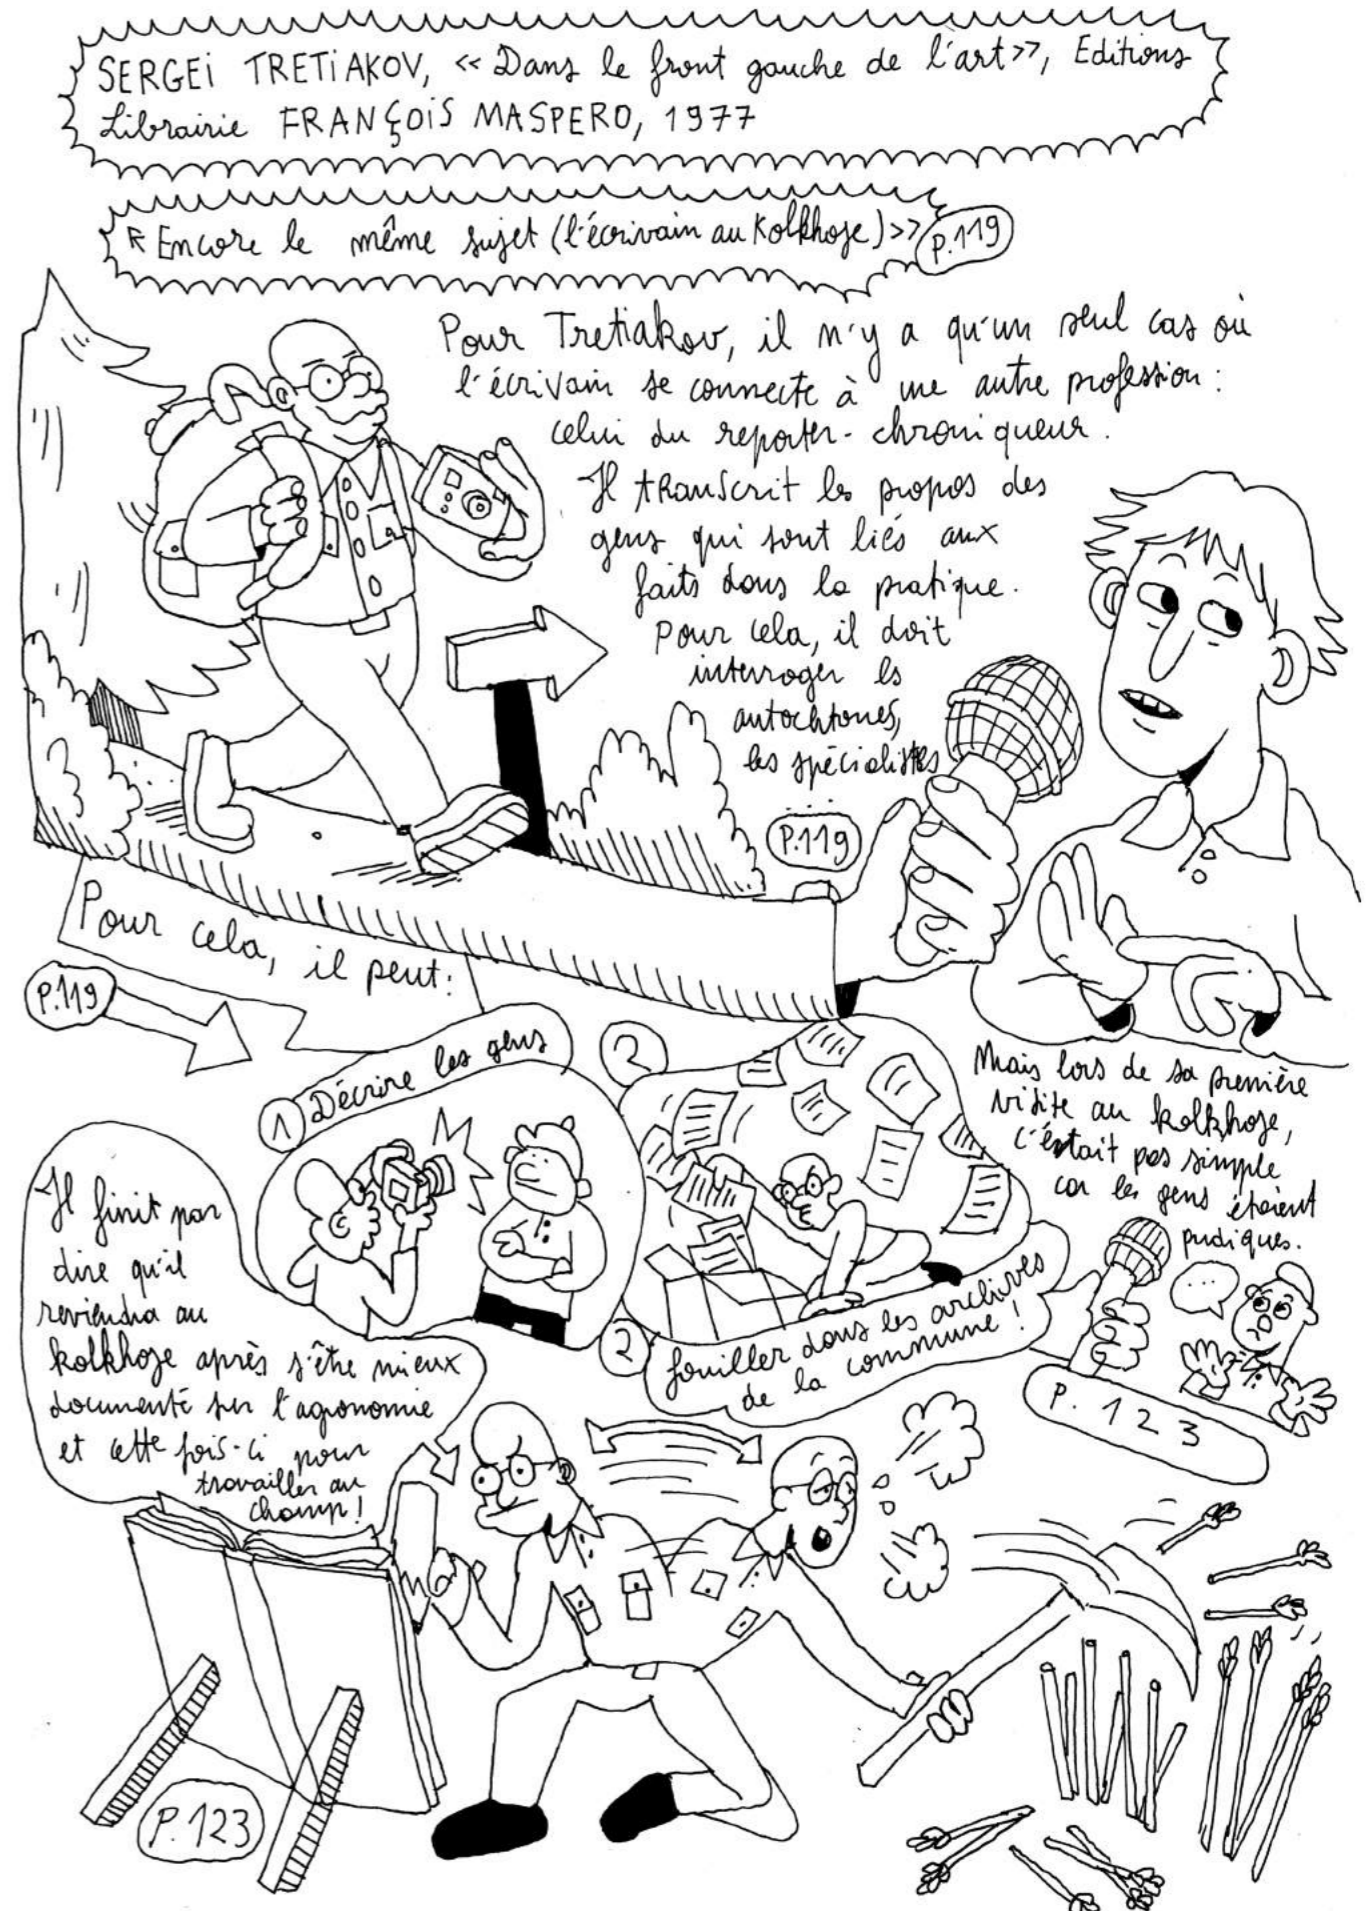 SERGEI TRETIAKOV, << Dans le front gauche de l'art>>, Editions
Librairie FRANÇOIS MASPERO, 1977
<< Encore le même sujet (l'écrivain au Kolkhoze) >> P.119
Pour Tretiakov, il n'y a qu'un seul cas où
l'écrivain se connecte à une autre profession :
celui du reporter-chroniqueur.
Il transcrit les propos des
gens qui sont liés aux
faits dans la pratique.
Pour cela, il doit
interroger les
autochtones,
les spécialistes
...
P.119
Pour cela, il peut :
P.119
1 Décrire les gens
2
2 fouiller dans les archives
de la commune !
Mais lors de sa première
visite au kolkhoze,
c'était pas simple
car les gens étaient
pudiques.
...
P. 123
Il finit par
dire qu'il
reviendra au
kolkhoze après s'être mieux
documenté sur l'agronomie
et cette fois-ci pour
travailler au
champ !
P.123